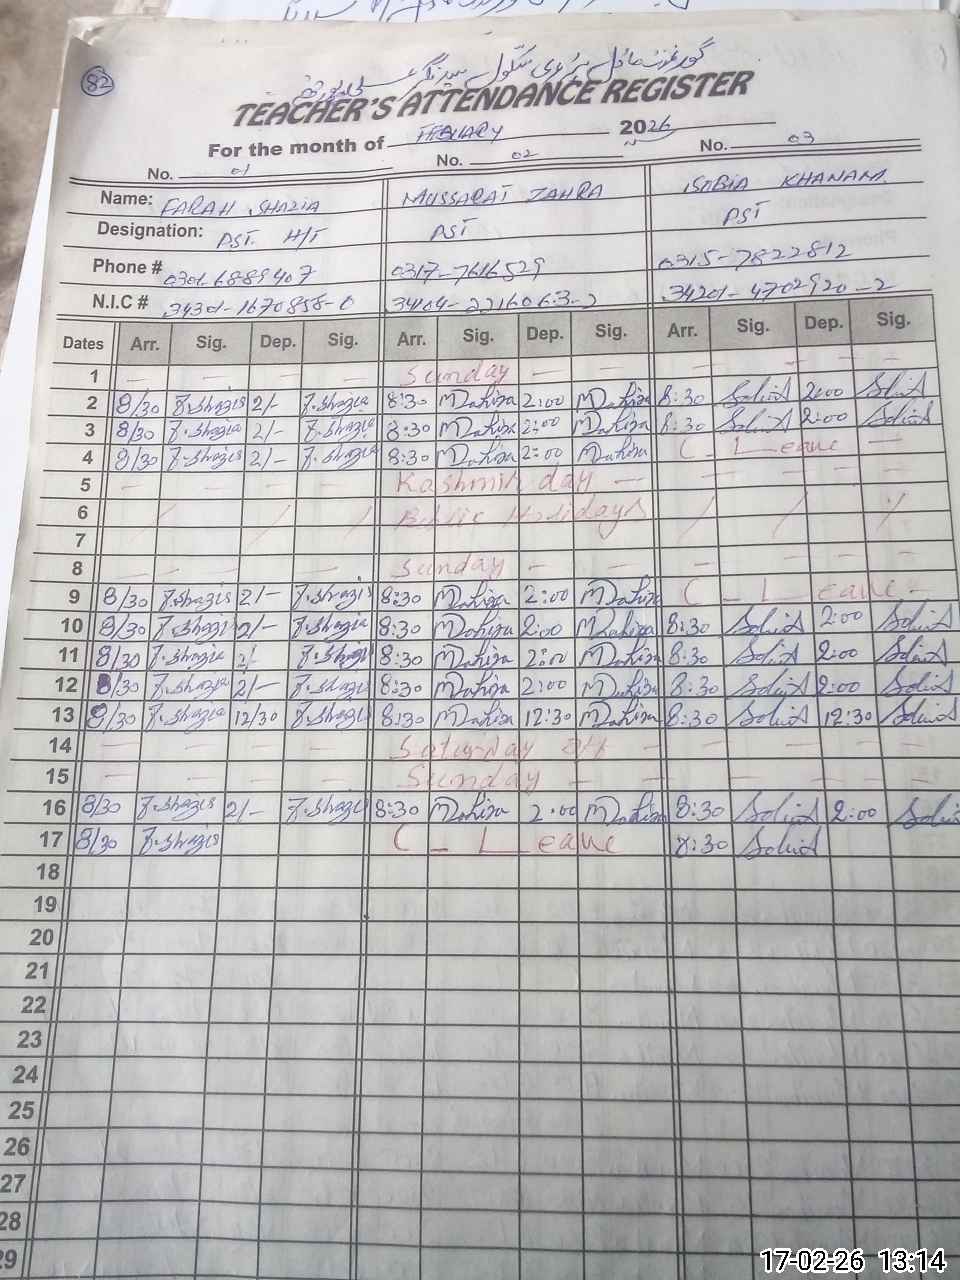 82
TEACHER'S ATTENDANCE REGISTER
For the month of FEBUARY 2026
No. 01 No. 02 No. 03
Name: FARAH SHAZIA MUSSARAT ZAHRA SOBIA KHANAM
Designation: PST. H/T PST PST
Phone # 0301-6889407 0317-7616529 0315-7822812
N.I.C # 34301-1670858-0 34104-2216063-2 34201-4702920-2
Dates Arr. Sig. Dep. Sig. Arr. Sig. Dep. Sig. Arr. Sig. Dep. Sig.
1 — — — — Sunday — — — — — —
2 8/30 F.Shazia 2/- F.Shazia 8:30 2:00 8:30 2:00
3 8/30 F.Shazia 2/- F.Shazia 8:30 2:00 8:30 2:00
4 8/30 F.Shazia 2/- F.Shazia 8:30 2:00 C - Leave —
5 — — — — Kashmir day — — — — —
6 / / / Public Holidays / / /
7
8 — — — — Sunday — — — — — —
9 8/30 F.Shazia 2/- F.Shazia 8:30 2:00 C - Leave -
10 8/30 F.Shazia 2/- F.Shazia 8:30 2:00 8:30 2:00
11 8/30 F.Shazia 2/- F.Shazia 8:30 2:00 8:30 2:00
12 8/30 F.Shazia 2/- F.Shazia 8:30 2:00 8:30 2:00
13 8/30 F.Shazia 12/30 F.Shazia 8:30 12:30 8:30 12:30
14 — — — — Saturday off — — — — —
15 — — — — Sunday — — — — — —
16 8/30 F.Shazia 2/- F.Shazia 8:30 2:00 8:30 2:00
17 8/30 F.Shazia C - Leave 8:30
18
19
20
21
22
23
24
25
26
27
28
29
17-02-26 13:14